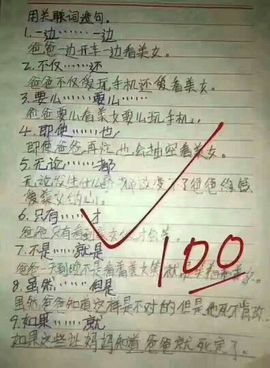 用关联词造句。
1.一边……一边
爸爸一边开车一边看美女。
2.不仅……还
爸爸不仅像玩手机还像看美女。
3.要么……要么
爸爸要么看美女要么玩手机。
4.即使……也
即使爸爸再忙也会抽空看美女。
5.无论……都
无论发生什么都改变不了爸爸
像美女
6.只有……才
爸爸只有看到美女才会笑。
7.不是……就是
爸爸一天到晚不是看着美女就
8.虽然……但是
虽然爸爸知道这样是不对的但是他死不悔改。
9.如果……就
如果这些让妈妈知道爸爸就死定了。
100